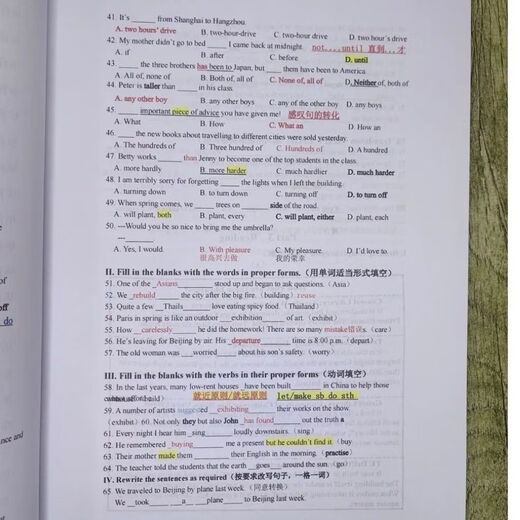 41. It's ______ from Shanghai to Hangzhou.
A. two hours' drive B. two-hour-drive C. two-hour drive D. two hour's drive
42. My mother didn't go to bed ____ I came back at midnight. not....until 直到...才
A. if B. after C. before D. until
43. ____ the three brothers has been to Japan, but ____ them have been to America.
A. All of, none of B. Both of, all of C. None of, all of D. Neither of, both of
44. Peter is taller than ______ in his class.
A. any other boy B. any other boys C. any of the other boy D. any boys
45. ____ important piece of advice you have given me! 感叹句的转化
A. What B. How C. What an D. How an
46. ____ the new books about travelling to different cities were sold yesterday.
A. The hundreds of B. Three hundred of C. Hundreds of D. A hundred
47. Betty works ______ than Jenny to become one of the top students in the class.
A. more hardly B. more harder C. much hardlier D. much harder
48. I am terribly sorry for forgetting ____ the lights when I left the building.
A. turning down B. to turn down C. turning off D. to turn off
49. When spring comes, we ____ trees on ______ side of the road.
A. will plant, both B. plant, every C. will plant, either D. plant, each
50. ---Would you be so nice to bring me the umbrella?
---__________
A. Yes, I would. B. With pleasure C. My pleasure. D. I'd love to.
很高兴去做 我的荣幸
II. Fill in the blanks with the words in proper forms. (用单词适当形式填空)
51. One of the _Asians______ stood up and began to ask questions. (Asia)
52. We _rebuild____ the city after the big fire. (building) reuse
53. Quite a few __Thais____ love eating spicy food. (Thailand)
54. Paris in spring is like an outdoor ___exhibition____ of art. (exhibit)
55. How __carelessly___ he did the homework! There are so many mistake错误s. (care)
56. He's leaving for Beijing by air. His _departure_____ time is 8:00 p.m. (depart)
57. The old woman was __worried____ about his son's safety. (worry)
III. Fill in the blanks with the verbs in their proper forms (动词填空)
58. In the last years, many low-rent houses _have been built______ in China to help those
就近原则/就远原则 let/make sb do sth
59. A number of artists suggested _exhibiting______ their works on the show.
(exhibit) 60. Not only they but also John _has found____ out the truth a
61. Every night I hear him _sing____ loudly downstairs. (sing)
62. He remembered _buying______ me a present but he couldn't find it. (buy
63. Their mother made them ________ their English in the morning. (practise)
64. The teacher told the students that the earth __goes___ around the sun. (go)
IV. Rewrite the sentences as required (按要求改写句子，一格一词)
65. We traveled to Beijing by plane last week. (同意转换)
We __took_____ __a____ __plane_____ to Beijing last week.
of
off
do
nce and